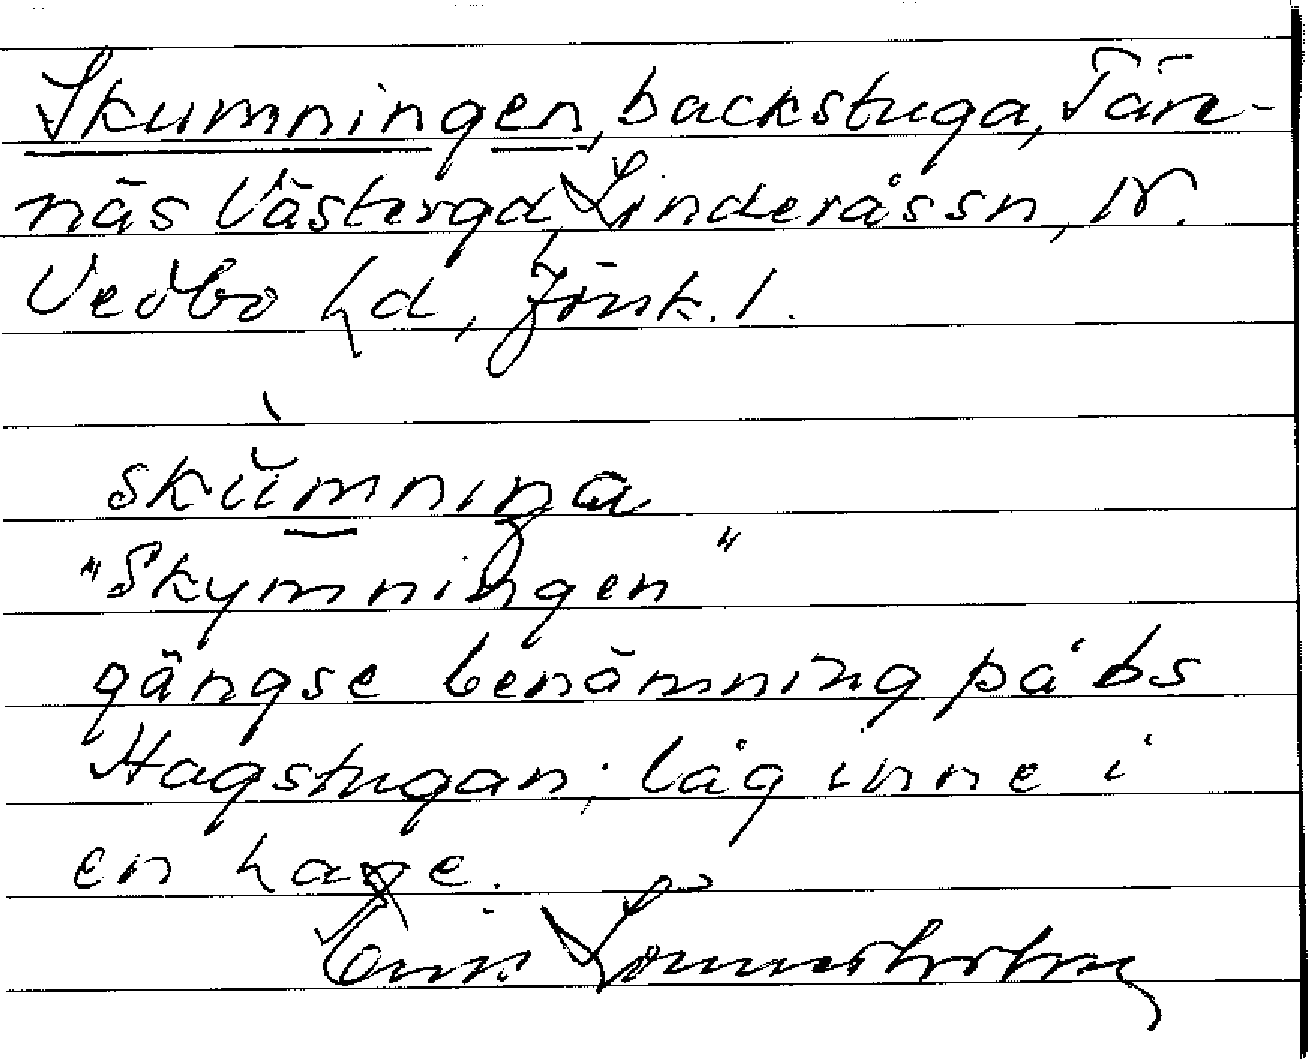 Skumningen, backstuga, Tär-
näs Västergd, Linderås sn, N.
Vedbo hd, Jönk. l.
skùmnıŋa
"Skymningen"
gängse benämning på bs
Hagstugan; låg inne i
en hage.